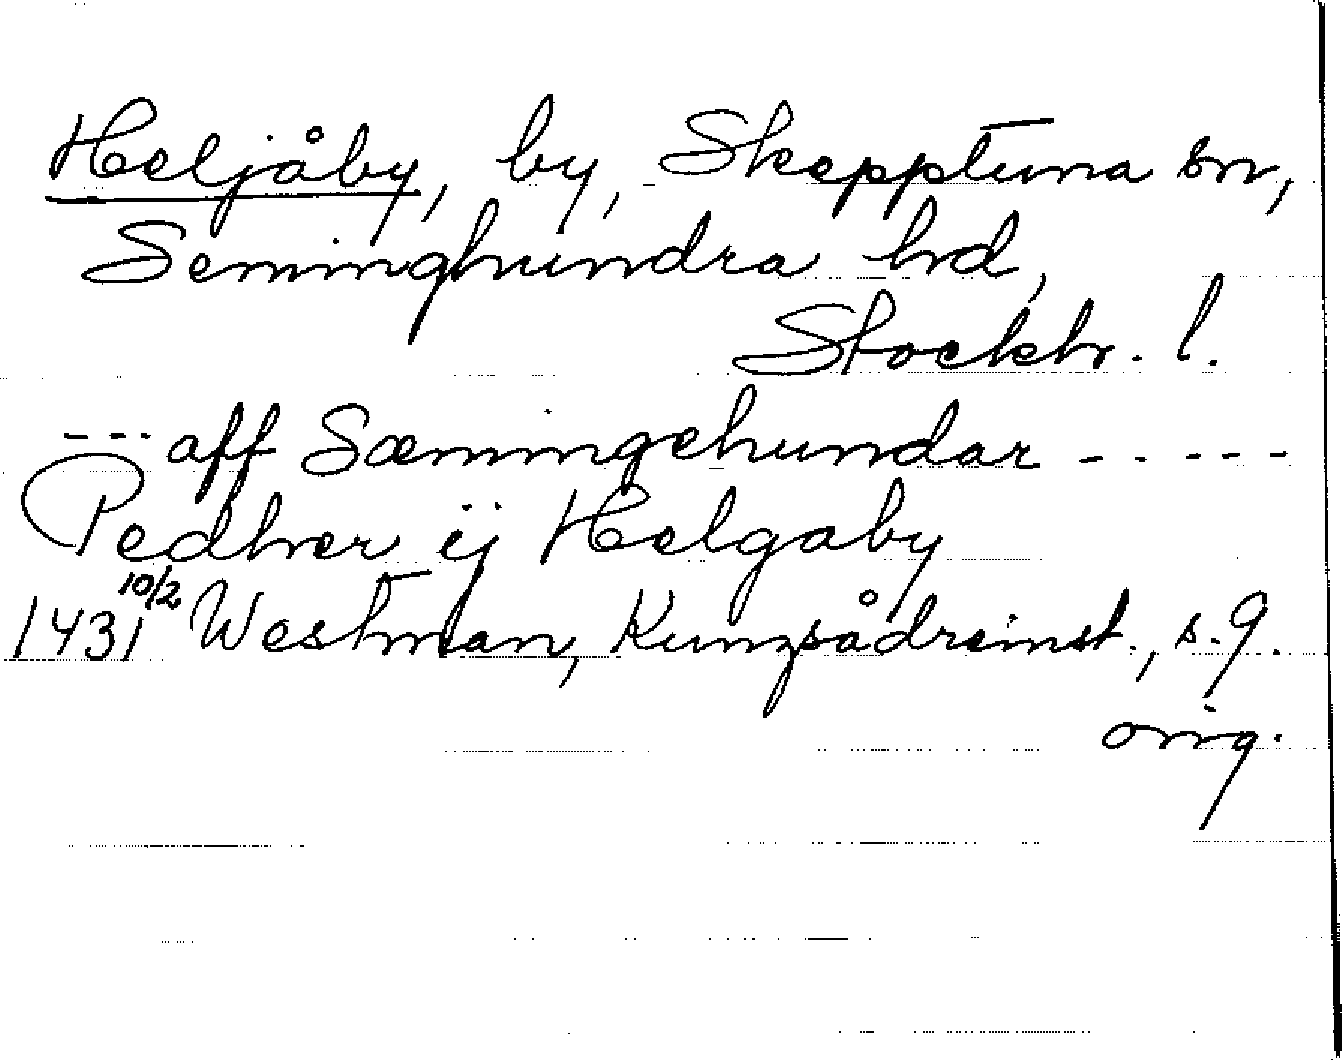 Heljåby, by, Skepptuna sn,
Seminghundra hd,
Stockh. l.
--- aff Sæmingehundar -----
Pedher ij Helgaby
1431 10/2 Westman, Kungsådreinst., s. 9.
orig.